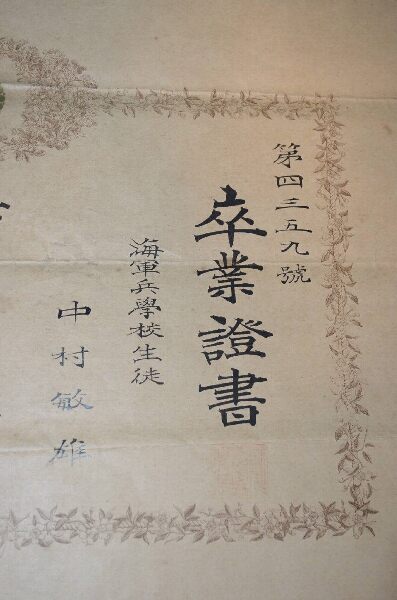 第四三五九號
卒業證書
海軍兵學校生徒
中村敏雄